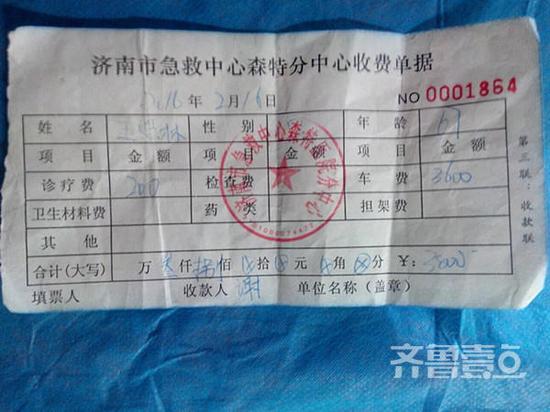 济南市急救中心森特分中心收费单据
2016年2月16日 NO 0001864
姓名 性别 年龄 67
项目 金额 项目 金额 项目 金额
诊疗费 200 检查费 车费 3600
卫生材料费 药类 担架费
其他
合计(大写) 万 仟 捌佰 拾 元 角 分 ¥:
填票人 收款人 谢 单位名称(盖章)
第三联:收款联
济南市急救中心森特医院分中心
齐鲁壹点